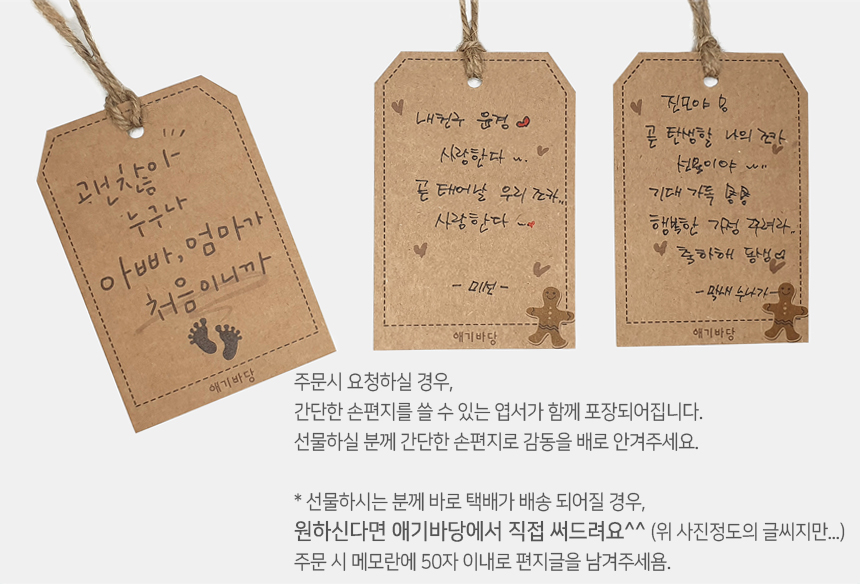 괜찮아
누구나
아빠, 엄마가
처음이니까
애기바당
내친구 윤경
사랑한다
곧 태어날 우리 조카..
사랑한다
- 미선 -
애기바당
진모야
곧 탄생할 나의 조카
선물이야
기대 가득
행복한 가정 꾸려라..
축하해 동생
- 막내누나가 -
애기바당
주문시 요청하실 경우,
간단한 손편지를 쓸 수 있는 엽서가 함께 포장되어집니다.
선물하실 분께 간단한 손편지로 감동을 배로 안겨주세요.
* 선물하시는 분께 바로 택배가 배송 되어질 경우,
원하신다면 애기바당에서 직접 써드려요^^ (위 사진정도의 글씨지만...)
주문 시 메모란에 50자 이내로 편지글을 남겨주세욤.